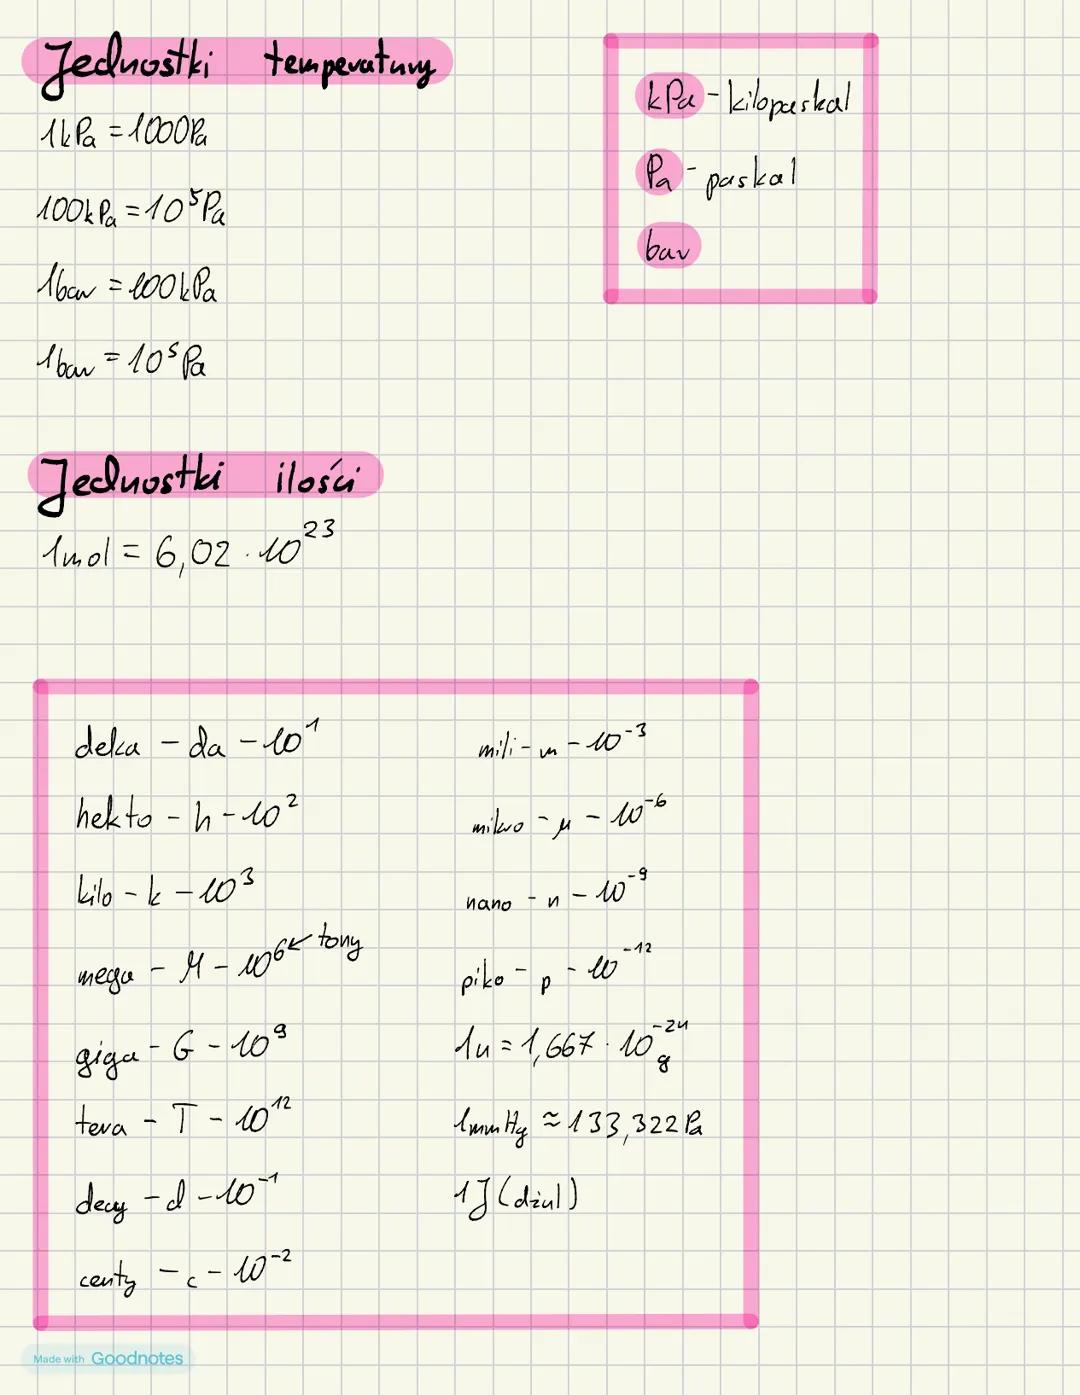 Jednostki temperatury
1kPa = 1000Pa
100kPa = 10⁵Pa
1bar = 100kPa
1bar = 10⁵Pa
kPa - kilopaskal
Pa - paskal
bar
Jednostki ilości
1mol = 6,02 · 10²³
deka - da - 10¹
hekto - h - 10²
kilo - k - 10³
mega - M - 10⁶ ← tony
giga - G - 10⁹
tera - T - 10¹²
decy - d - 10⁻¹
centy - c - 10⁻²
mili - m - 10⁻³
mikro - μ - 10⁻⁶
nano - n - 10⁻⁹
piko - p - 10⁻¹²
1u = 1,667 · 10⁻²⁴ g
1mmHg ≈ 133,322Pa
1J (dżul)
Made with Goodnotes